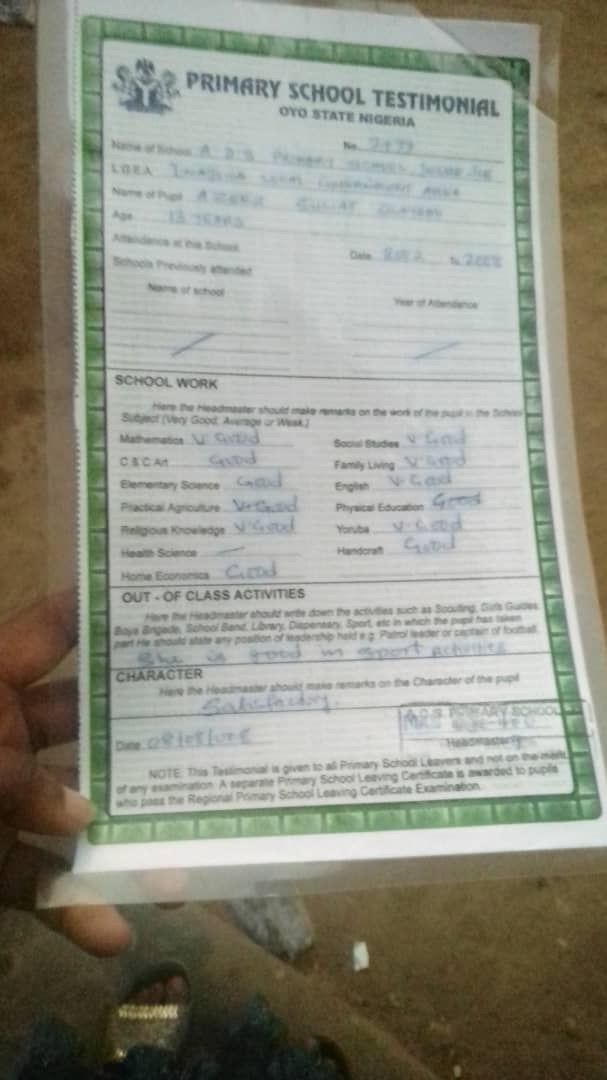 PRIMARY SCHOOL TESTIMONIAL
OYO STATE NIGERIA
No. 7477
Name of School A.D.S PRIMARY SCHOOL
L.G.E.A. LOCAL GOVERNMENT AREA
Name of Pupil
Age 13 YEARS
Attendance at this School Date 2002 To 2008
Schools Previously attended
Name of school Year of Attendance
SCHOOL WORK
Here the Headmaster should make remarks on the work of the pupil in the School
Subject (Very Good, Average or Weak.)
Mathematics V. Good Social Studies V. Good
C & C Art Good Family Living V. Good
Elementary Science Good English V. Good
Practical Agriculture V. Good Physical Education Good
Religious Knowledge V. Good Yoruba V. Good
Health Science Handcraft Good
Home Economics Good
OUT - OF CLASS ACTIVITIES
Here the Headmaster should write down the activities such as Scouting, Girls Guides,
Boys Brigade, School Band, Library, Dispensary, Sport, etc in which the pupil has taken
part He should state any position of leadership held e.g. Patrol leader or captain of football.
She is good in sport activities
CHARACTER
Here the Headmaster should make remarks on the Character of the pupil
Satisfactory.
A.D.S. PRIMARY SCHOOL
Date
Headmaster
NOTE: This Testimonial is given to all Primary School Leavers and not on the merit
of any examination. A separate Primary School Leaving Certificate is awarded to pupils
who pass the Regional Primary School Leaving Certificate Examination.